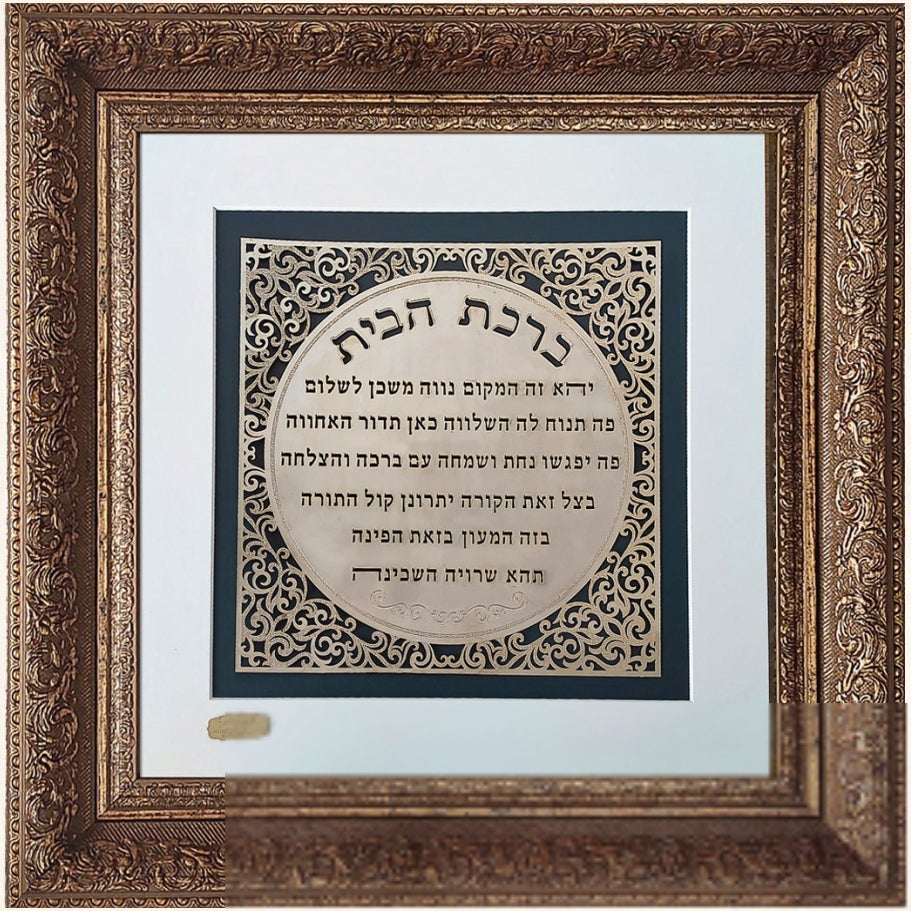 ברכת הבית
יהא זה המקום נווה משכן לשלום
פה תנוח לה השלווה כאן תדור האחווה
פה יפגשו נחת ושמחה עם ברכה והצלחה
בצל זאת הקורה יתרונן קול התורה
בזה המעון בזאת הפינה
תהא שרויה השכינה